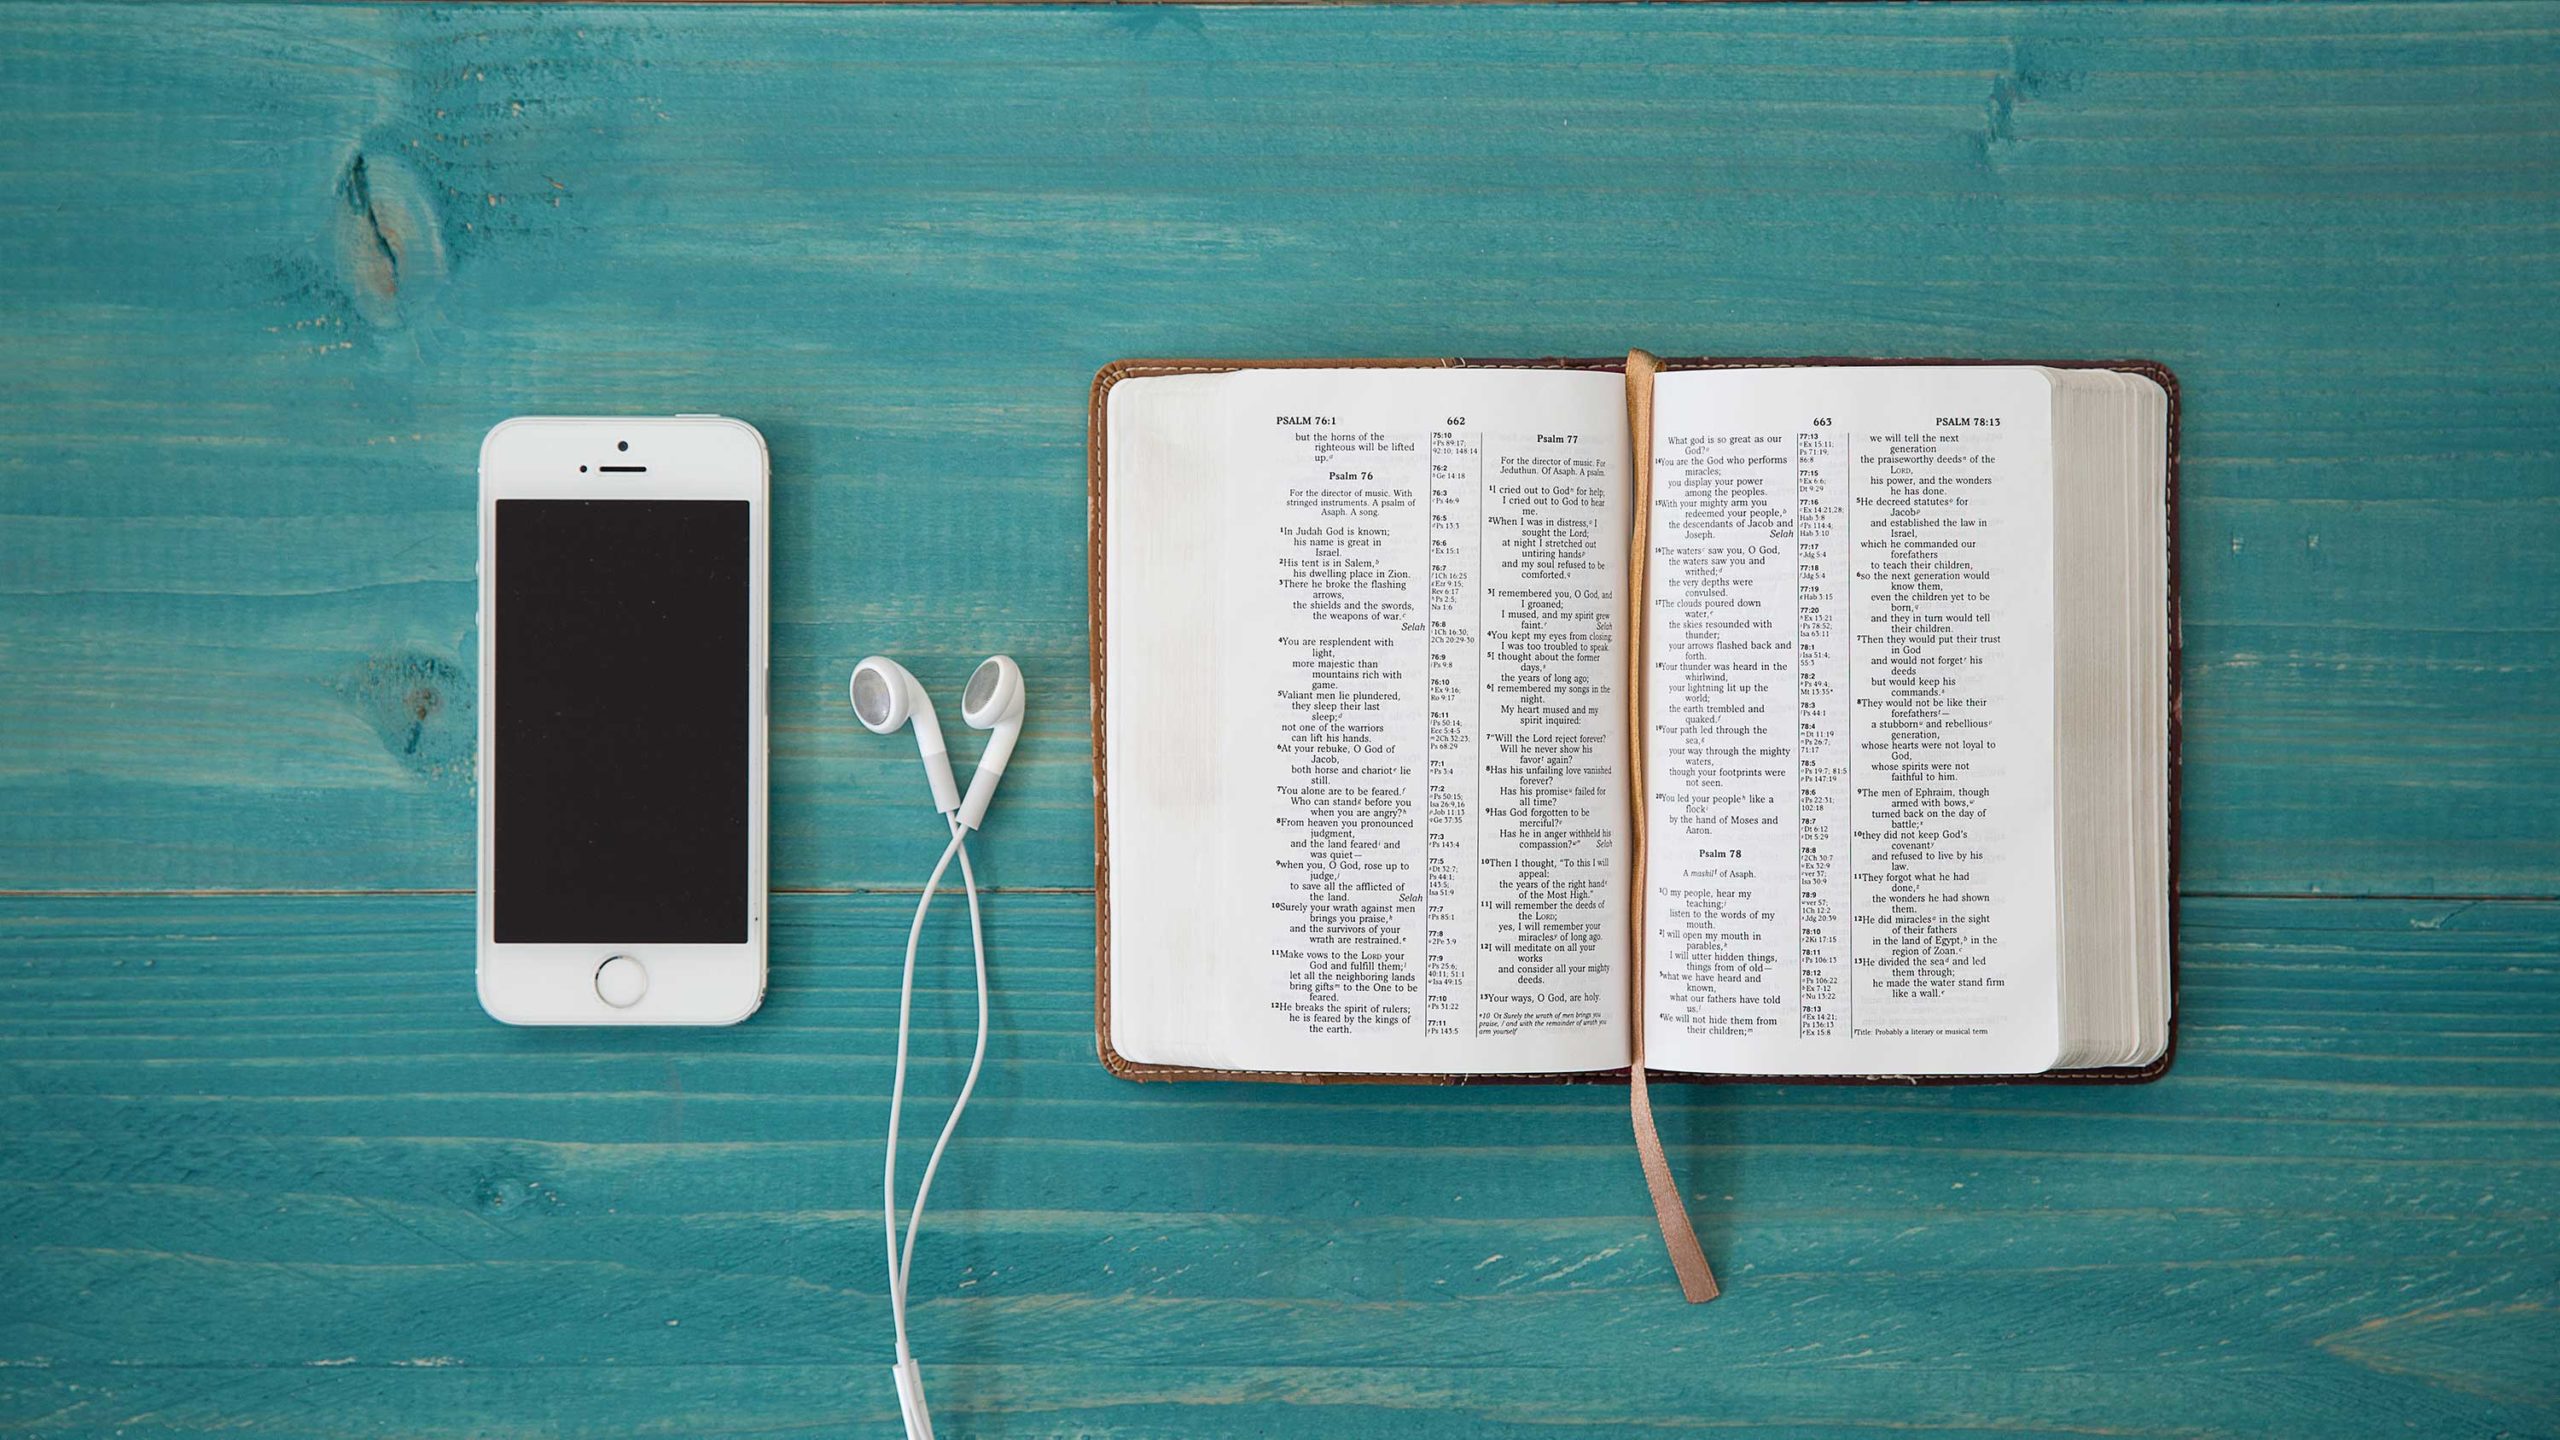 PSALM 76:1
662
but the horns of the
righteous will be lifted
up.
Psalm 76
For the director of music. With
stringed instruments. A psalm of
Asaph. A song.
1In Judah God is known;
his name is great in
Israel.
2His tent is in Salem,b
his dwelling place in Zion.
3There he broke the flashing
arrows,
the shields and the swords,
the weapons of war.c
Selah
4You are resplendent with
light,
more majestic than
mountains rich with
game.
5Valiant men lie plundered,
they sleep their last
sleep;d
not one of the warriors
can lift his hands.
6At your rebuke, O God of
Jacob,
both horse and chariote lie
still.
7You alone are to be feared.f
Who can standg before you
when you are angry?h
8From heaven you pronounced
judgment,
and the land fearedi and
was quiet—
9when you, O God, rose up to
judge,j
to save all the afflicted of
the land. Selah
10Surely your wrath against men
brings you praise,k
and the survivors of your
wrath are restrained.e
11Make vows to the LORD your
God and fulfill them;l
let all the neighboring lands
bring giftsm to the One to be
feared.
12He breaks the spirit of rulers;
he is feared by the kings of
the earth.
75:10
Ps 89:17;
92:10; 148:14
76:2
Ge 14:18
76:3
Ps 46:9
76:5
Ps 13:3
76:6
Ex 15:1
76:7
1Ch 16:25
Ezr 9:15;
Rev 6:17
Ps 2:5;
Na 1:6
76:8
1Ch 16:30;
2Ch 20:29-30
76:9
Ps 9:8
76:10
Ex 9:16;
Ro 9:17
76:11
Ps 50:14;
Ecc 5:4-5
2Ch 32:23;
Ps 68:29
77:1
Ps 3:4
77:2
Ps 50:15;
Isa 26:9,16
Job 11:13
Ge 37:35
77:3
Ps 143:4
77:5
Dt 32:7;
Ps 44:1;
143:5;
Isa 51:9
77:7
Ps 85:1
77:8
2Pe 3:9
77:9
Ps 25:6;
40:11; 51:1
Isa 49:15
77:10
Ps 31:22
77:11
Ps 143:5
Psalm 77
For the director of music. For
Jeduthun. Of Asaph. A psalm.
1I cried out to Godn for help;
I cried out to God to hear
me.
2When I was in distress,o I
sought the Lord;
at night I stretched out
untiring handsp
and my soul refused to be
comforted.q
3I remembered you, O God, and
I groaned;
I mused, and my spirit grew
faint.r Selah
4You kept my eyes from closing;
I was too troubled to speak.
5I thought about the former
days,s
the years of long ago;
6I remembered my songs in the
night.
My heart mused and my
spirit inquired:
7"Will the Lord reject forever?
Will he never show his
favort again?
8Has his unfailing love vanished
forever?
Has his promiseu failed for
all time?
9Has God forgotten to be
merciful?v
Has he in anger withheld his
compassion?w" Selah
10Then I thought, "To this I will
appeal:
the years of the right hand
of the Most High."
11I will remember the deeds of
the LORD;
yes, I will remember your
miraclesy of long ago.
12I will meditate on all your
works
and consider all your mighty
deeds.
13Your ways, O God, are holy.
10 Or Surely the wrath of men brings you
praise, / and with the remainder of wrath you
arm yourself
663
PSALM 78:13
What god is so great as our
God?
14You are the God who performs
miracles;
you display your power
among the peoples.
15With your mighty arm you
redeemed your people,b
the descendants of Jacob and
Joseph. Selah
16The waters saw you, O God,
the waters saw you and
writhed;d
the very depths were
convulsed.
17The clouds poured down
water,e
the skies resounded with
thunder;
your arrows flashed back and
forth.
18Your thunder was heard in the
whirlwind,
your lightning lit up the
world;
the earth trembled and
quaked.f
19Your path led through the
sea,g
your way through the mighty
waters,
though your footprints were
not seen.
20You led your peopleh like a
flock
by the hand of Moses and
Aaron.
Psalm 78
A maskil of Asaph.
1O my people, hear my
teaching;
listen to the words of my
mouth.
2I will open my mouth in
parables,k
I will utter hidden things,
things from of old—
3what we have heard and
known,
what our fathers have told
us.l
4We will not hide them from
their children;m
77:13
Ex 15:11;
Ps 71:19;
86:8
77:15
Ex 6:6;
Dt 9:29
77:16
Ex 14:21,28;
Hab 3:8
Ps 114:4;
Hab 3:10
77:17
Jdg 5:4
77:18
Jdg 5:4
77:19
Hab 3:15
77:20
Ex 13:21
Ps 78:52;
Isa 63:11
78:1
Isa 51:4;
55:3
78:2
Ps 49:4;
Mt 13:35*
78:3
Ps 44:1
78:4
Dt 11:19
Ps 26:7;
71:17
78:5
Ps 19:7; 81:5
Ps 147:19
78:6
Ps 22:31;
102:18
78:7
Dt 6:12
Dt 5:29
78:8
2Ch 30:7
Ex 32:9
ver 37;
Isa 30:9
78:9
ver 57;
1Ch 12:2
Jdg 20:39
78:10
2Ki 17:15
78:11
Ps 106:13
78:12
Ps 106:22
Ex 7-12
Nu 13:22
78:13
Ex 14:21;
Ps 136:13
Ex 15:8
we will tell the next
generation
the praiseworthy deedsn of the
LORD,
his power, and the wonders
he has done.
5He decreed statuteso for
Jacobp
and established the law in
Israel,
which he commanded our
forefathers
to teach their children,
6so the next generation would
know them,
even the children yet to be
born,q
and they in turn would tell
their children.
7Then they would put their trust
in God
and would not forgetr his
deeds
but would keep his
commands.s
8They would not be like their
forefatherst—
a stubbornu and rebelliousv
generation,
whose hearts were not loyal to
God,
whose spirits were not
faithful to him.
9The men of Ephraim, though
armed with bows,w
turned back on the day of
battle;x
10they did not keep God's
covenanty
and refused to live by his
law.
11They forgot what he had
done,z
the wonders he had shown
them.
12He did miraclesa in the sight
of their fathers
in the land of Egypt,b in the
region of Zoan.c
13He divided the sead and led
them through;
he made the water stand firm
like a wall.e
Title: Probably a literary or musical term